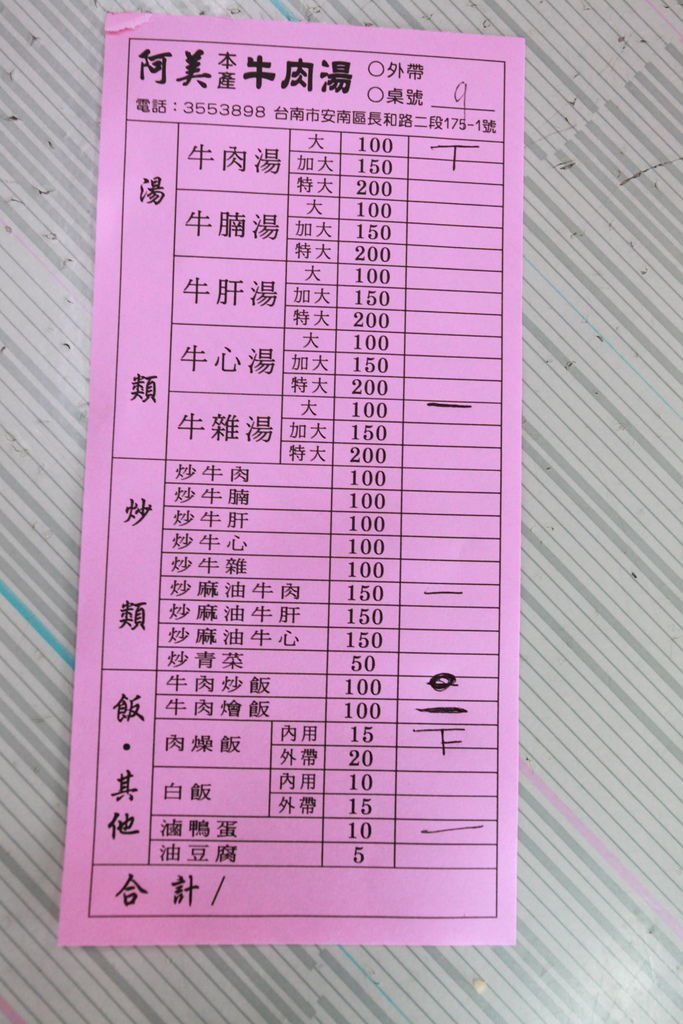 阿美 本產 牛肉湯 ○外帶
○桌號 9
電話：3553898 台南市安南區長和路二段175-1號
湯類
牛肉湯 大 100 丅
加大 150
特大 200
牛腩湯 大 100
加大 150
特大 200
牛肝湯 大 100
加大 150
特大 200
牛心湯 大 100
加大 150
特大 200
牛雜湯 大 100 一
加大 150
特大 200
炒類
炒牛肉 100
炒牛腩 100
炒牛肝 100
炒牛心 100
炒牛雜 100
炒麻油牛肉 150 一
炒麻油牛肝 150
炒麻油牛心 150
炒青菜 50
飯・其他
牛肉炒飯 100
牛肉燴飯 100 一
肉燥飯 內用 15 下
外帶 20
白飯 內用 10
外帶 15
滷鴨蛋 10 一
油豆腐 5
合計/